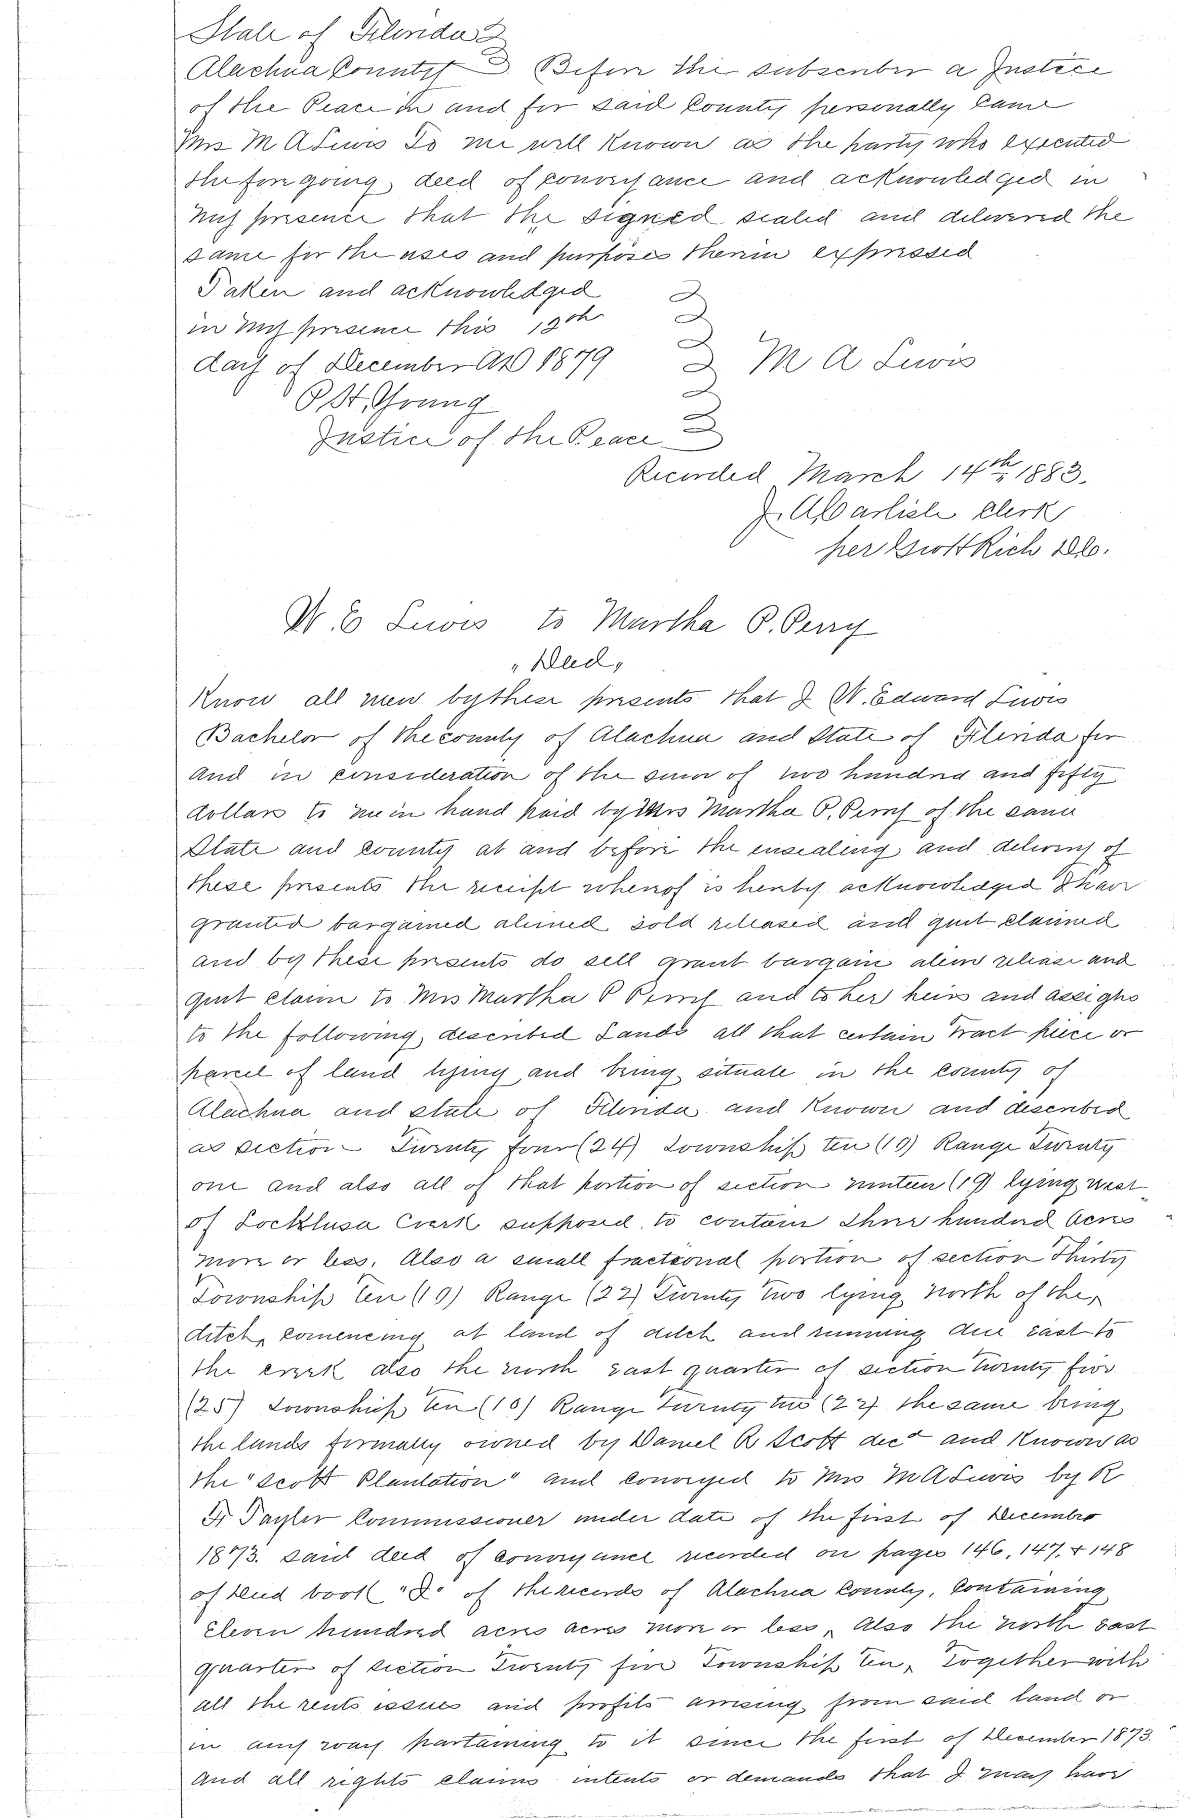 State of Florida
Alachua County Before the subscriber a Justice
of the Peace in and for said County personally came
Mrs M A Lewis To me well Known as the party who executed
the foregoing deed of conveyance and acknowledged in
my presence that she signed sealed and delivered the
same for the uses and purposes therein expressed
Taken and acknowledged
in my presence this 19th
day of December AD 1879 M A Lewis
P. H. Young
Justice of the Peace
Recorded March 14th 1883.
J. A. Carlisle Clerk
per Scott Rich D.C.
W. E Lewis to Martha P. Perry
"Deed"
Know all men by these presents that I W. Edward Lewis
Bachelor of the county of Alachua and State of Florida for
and in consideration of the sum of two hundred and fifty
dollars to me in hand paid by Mrs Martha P. Perry of the same
State and county at and before the ensealing and delivery of
these presents the receipt whereof is hereby acknowledged I have
granted bargained aliened sold released and quit claimed
and by these presents do sell grant bargain alien release and
quit claim to Mrs Martha P Perry and to her heirs and assigns
to the following described Lands all that certain Tract piece or
parcel of land lying and being situate in the county of
Alachua and state of Florida and Known and described
as section Twenty four (24) Township ten (10) Range Twenty
one and also all of that portion of section ninteen (19) lying west
of Locklusa Creek supposed to contain Three hundred Acres
more or less. Also a small fractional portion of section Thirty
Township Ten (10) Range (22) Twenty Two lying North of the
ditch, comencing at land of ditch and running due east to
the creek also the north east quarter of section twenty five
(25) Township Ten (10) Range Twenty two (22) the same being
the lands formally owned by Daniel R Scott decd and Known as
the "Scott Plantation" and conveyed to Mrs M A Lewis by R
F. Tayler Commissioner under date of the first of December
1873. said deed of conveyance recorded on pages 146, 147, + 148
of Deed book of the records of Alachua County, Containing
Eleven hundred acres acres more or less, Also the north east
quarter of section Twenty five Township Ten, Together with
all the rents issues and profits arrising from said land or
in any way partaining to it since the first of December 1873.
And all rights claims intents or demands that I may have